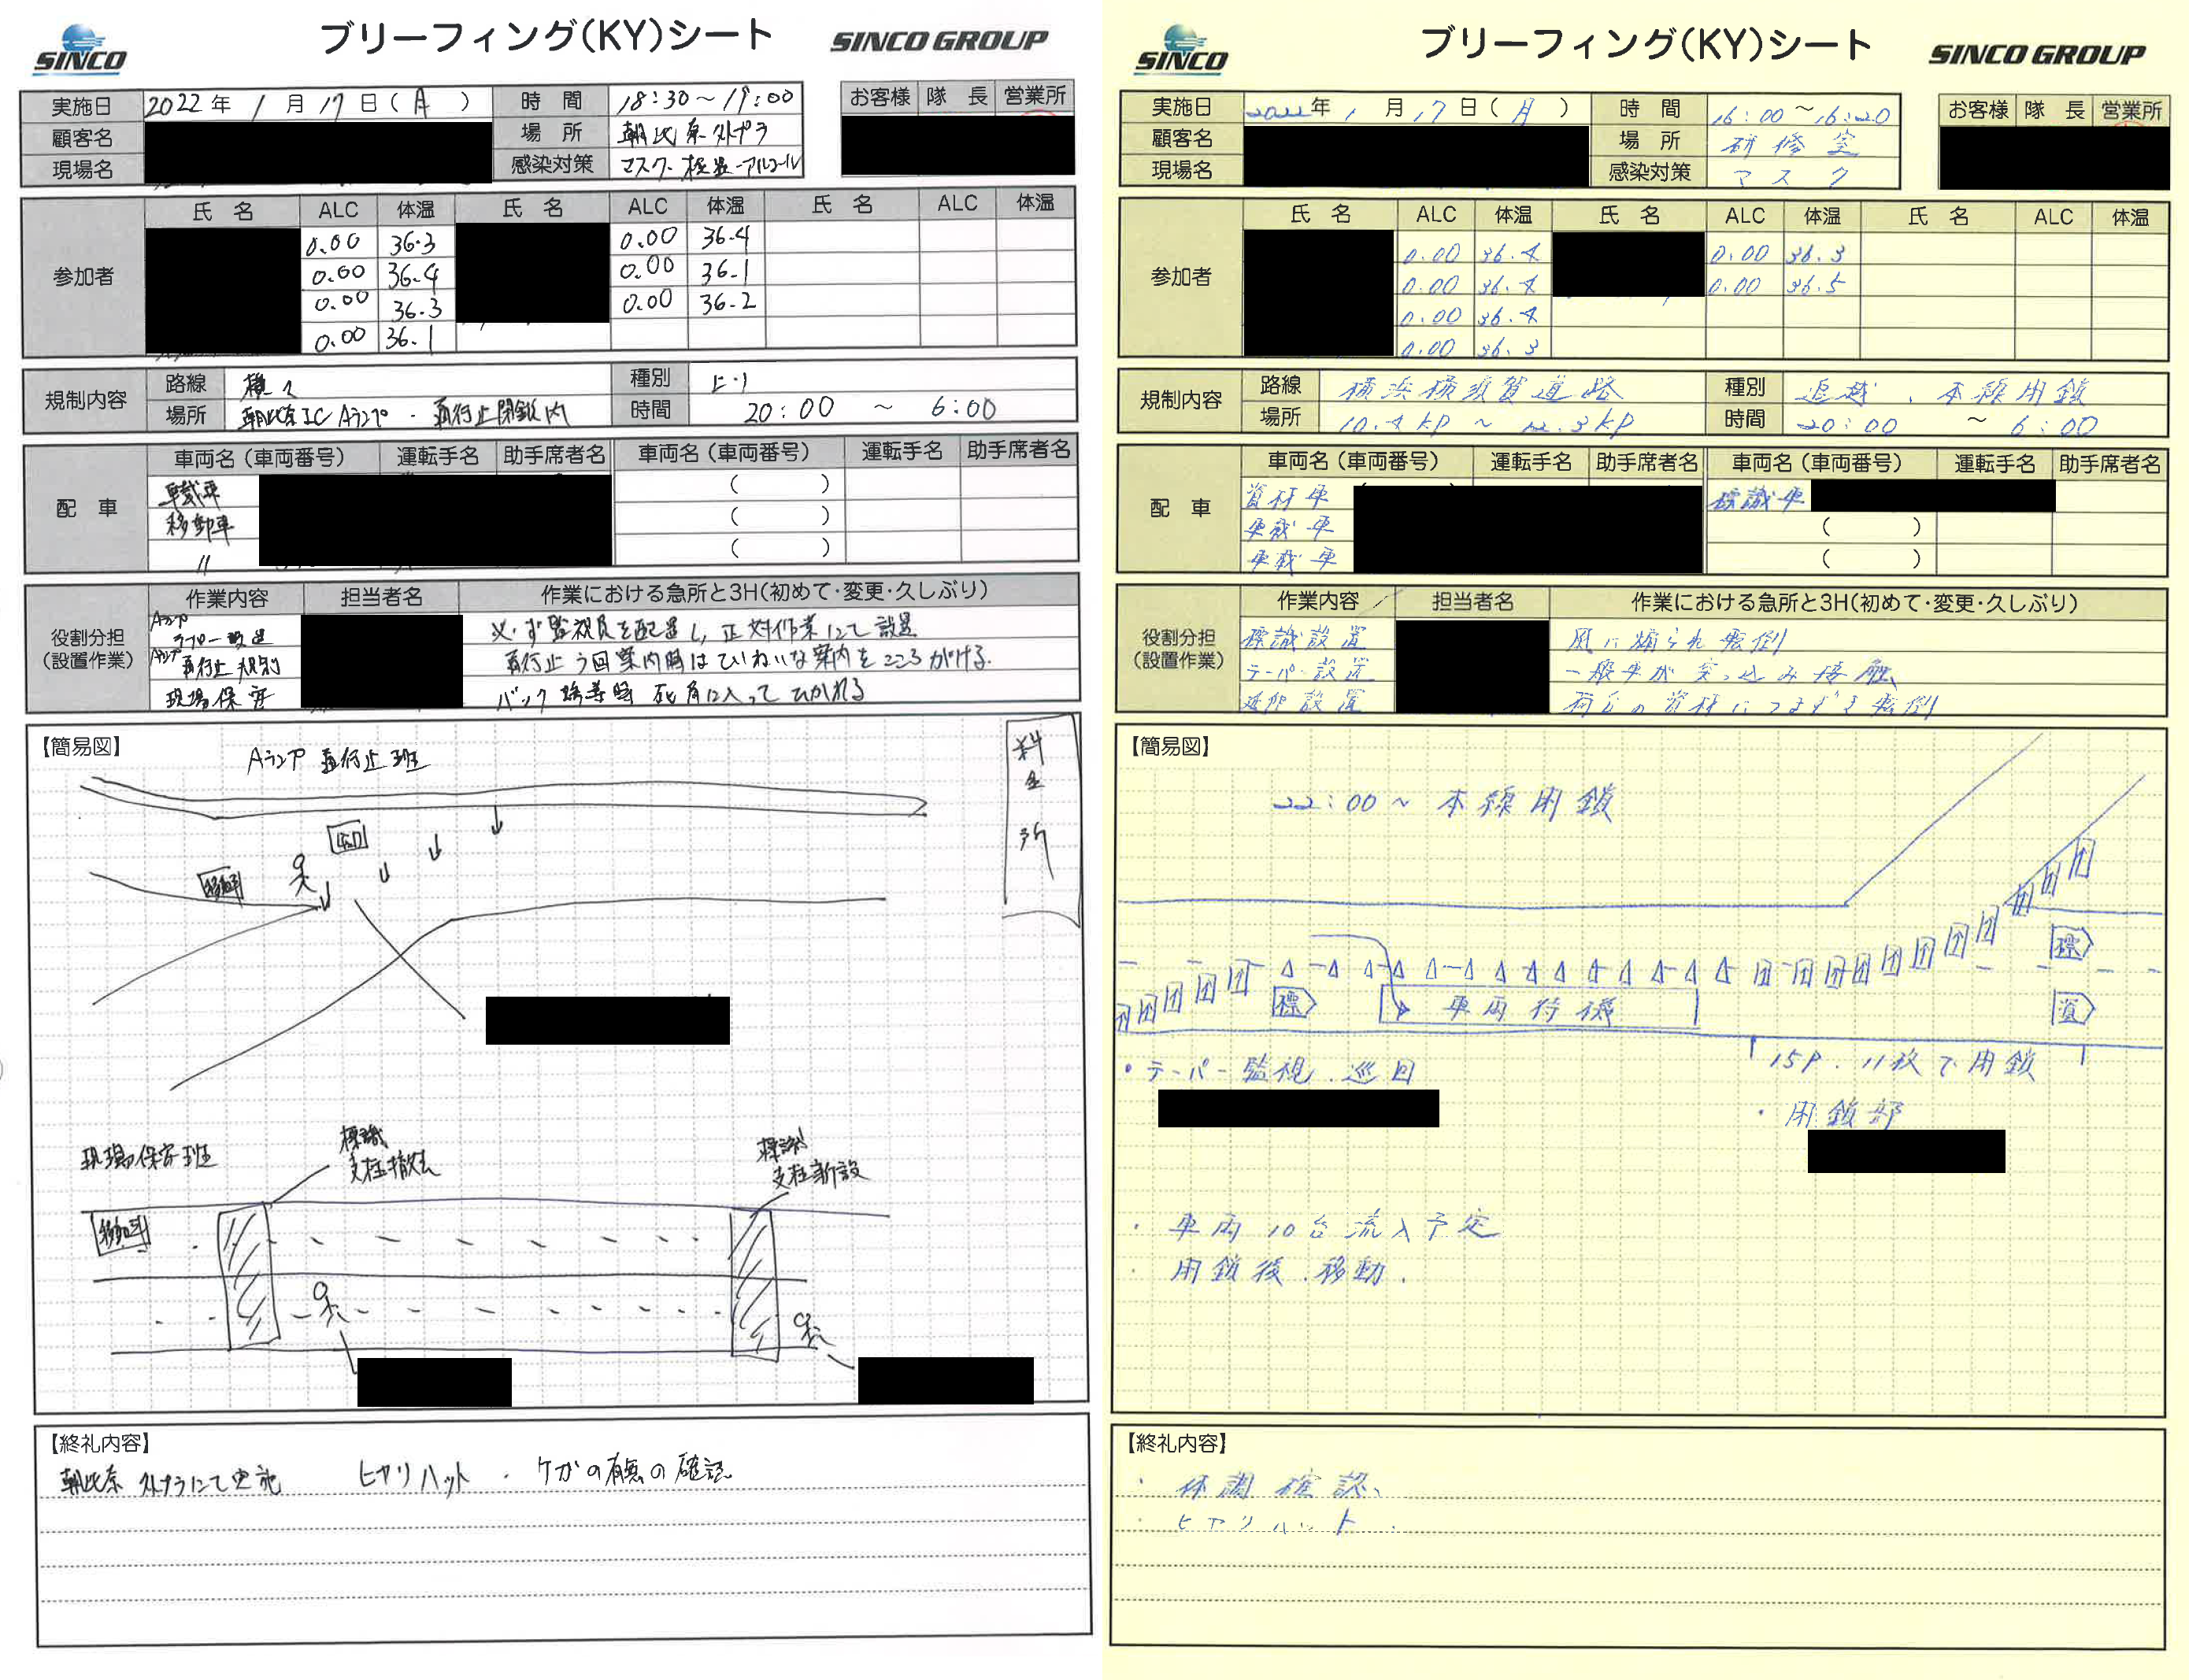 SINCO
ブリーフィング(KY)シート
SINCO GROUP
実施日 2022年 1月17日(月) 時間 18:30～19:00
顧客名 場所 朝比奈ストプラ
現場名 感染対策 マスク・検温・アルコール
お客様 隊長 営業所
参加者
氏名 ALC 体温 氏名 ALC 体温 氏名 ALC 体温
0.00 36.3 0.00 36.4
0.00 36.4 0.00 36.1
0.00 36.3 0.00 36.2
0.00 36.1
規制内容 路線 種別
場所 朝比奈IC Aランプ 時間 20:00 ～ 6:00
配車
車両名(車両番号) 運転手名 助手席者名 車両名(車両番号) 運転手名 助手席者名
( )
移動車 ( )
〃 ( )
役割分担(設置作業)
作業内容 担当者名 作業における急所と3H(初めて・変更・久しぶり)
Aランプ
テーパー設置 必ず監視員を配置し、正対作業にて設置
Aランプ
う回案内時はていねいな案内をこころがける.
現場保安 バック誘導時 死角に入ってひかれる
【簡易図】
Aランプ
料金所
現場保安班
標識
支柱撤去
標識
支柱新設
【終礼内容】
朝比奈 ストプラにて実施 ヒヤリハット・ケガの有無の確認
SINCO
ブリーフィング(KY)シート
SINCO GROUP
実施日 2022年 1月17日(月) 時間 16:00～16:20
顧客名 場所 研修室
現場名 感染対策 マスク
お客様 隊長 営業所
参加者
氏名 ALC 体温 氏名 ALC 体温 氏名 ALC 体温
0.00 36.4 0.00 36.3
0.00 36.4 0.00 36.5
0.00 36.4
0.00 36.3
規制内容 路線 横浜横須賀道路 種別 追越、本線閉鎖
場所 時間 20:00 ～ 6:00
配車
車両名(車両番号) 運転手名 助手席者名 車両名(車両番号) 運転手名 助手席者名
資材車 標識車
車載車 ( )
車載車 ( )
役割分担(設置作業)
作業内容 担当者名 作業における急所と3H(初めて・変更・久しぶり)
標識設置 風に煽られ転倒
テーパー設置 一般車が突っ込み接触
設置 荷台の資材につまずき転倒
【簡易図】
22:00～本線閉鎖
標
標
車両待機
資
・テーパー監視.巡回
15P.11枚で閉鎖
・閉鎖部
・車両10台流入予定
・閉鎖後.移動.
【終礼内容】
・体調確認、
・ヒヤリハット.